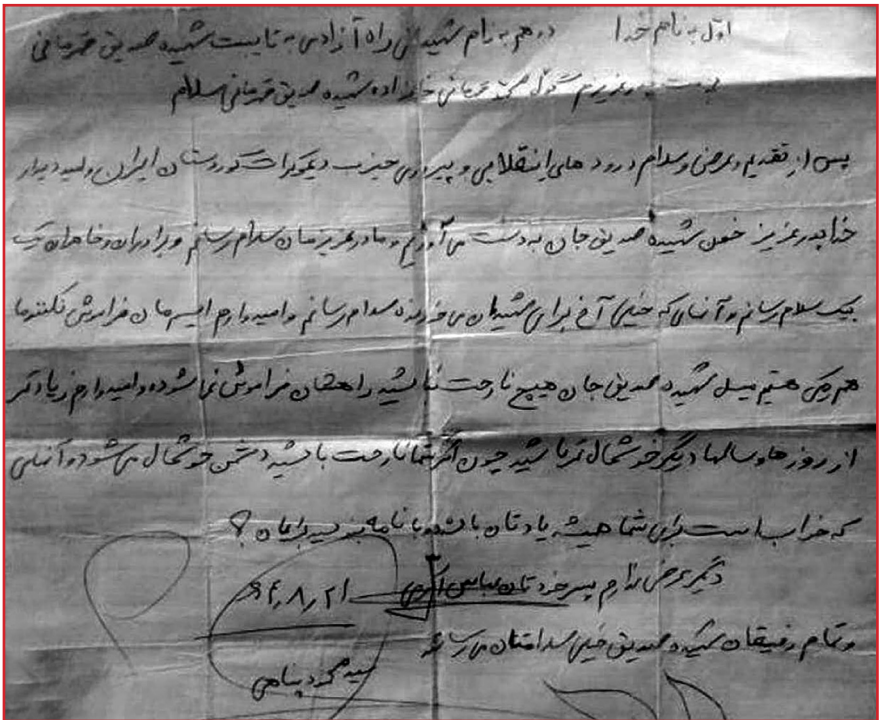 اول به نام خدا دوهم به نام شهیدان راه آزادی به تایبت شهید صدیق قهرمانی
پدر عزیزم محمد قهرمانی خانواده شهید صدیق قهرمانی سلام
پس از تقدیم عرض و سلام درود های انقلابی و پیروی حیزب دیموکرات کوردستان ایران و امید دیدار
خدا پدر عزیز خون شهید صدیق جان به دست می آوریم و مادر عزیزمان سلام رسانم و برادران و خاهران یک
بیک سلام رسانم و آنهای که خیلی آخ برای شهیدان می خورند سلام رسانم و امیدوارم ایمه مان فراموش نکنند ما
هم یکی هستیم میسل شهید صدیق جان هیچ نارحت نباشید راهشان فراموش نمی شود و امیدوارم زیادتر
از روزها و سالها دیگر خوشحال تر باشید چون اگر شما نارحت باشید دشمن خوشحال می شود و آنهای
که خراب است برای شما همیشه یادتان باشد با نامه بنویسید برایمان ؟
دیگر عرض ندارم پسر خودتان عباس
64,8,21
و تمام رفیقان شهید صدیق خیلی سلامتان می رسانند
سید محمود پناهی